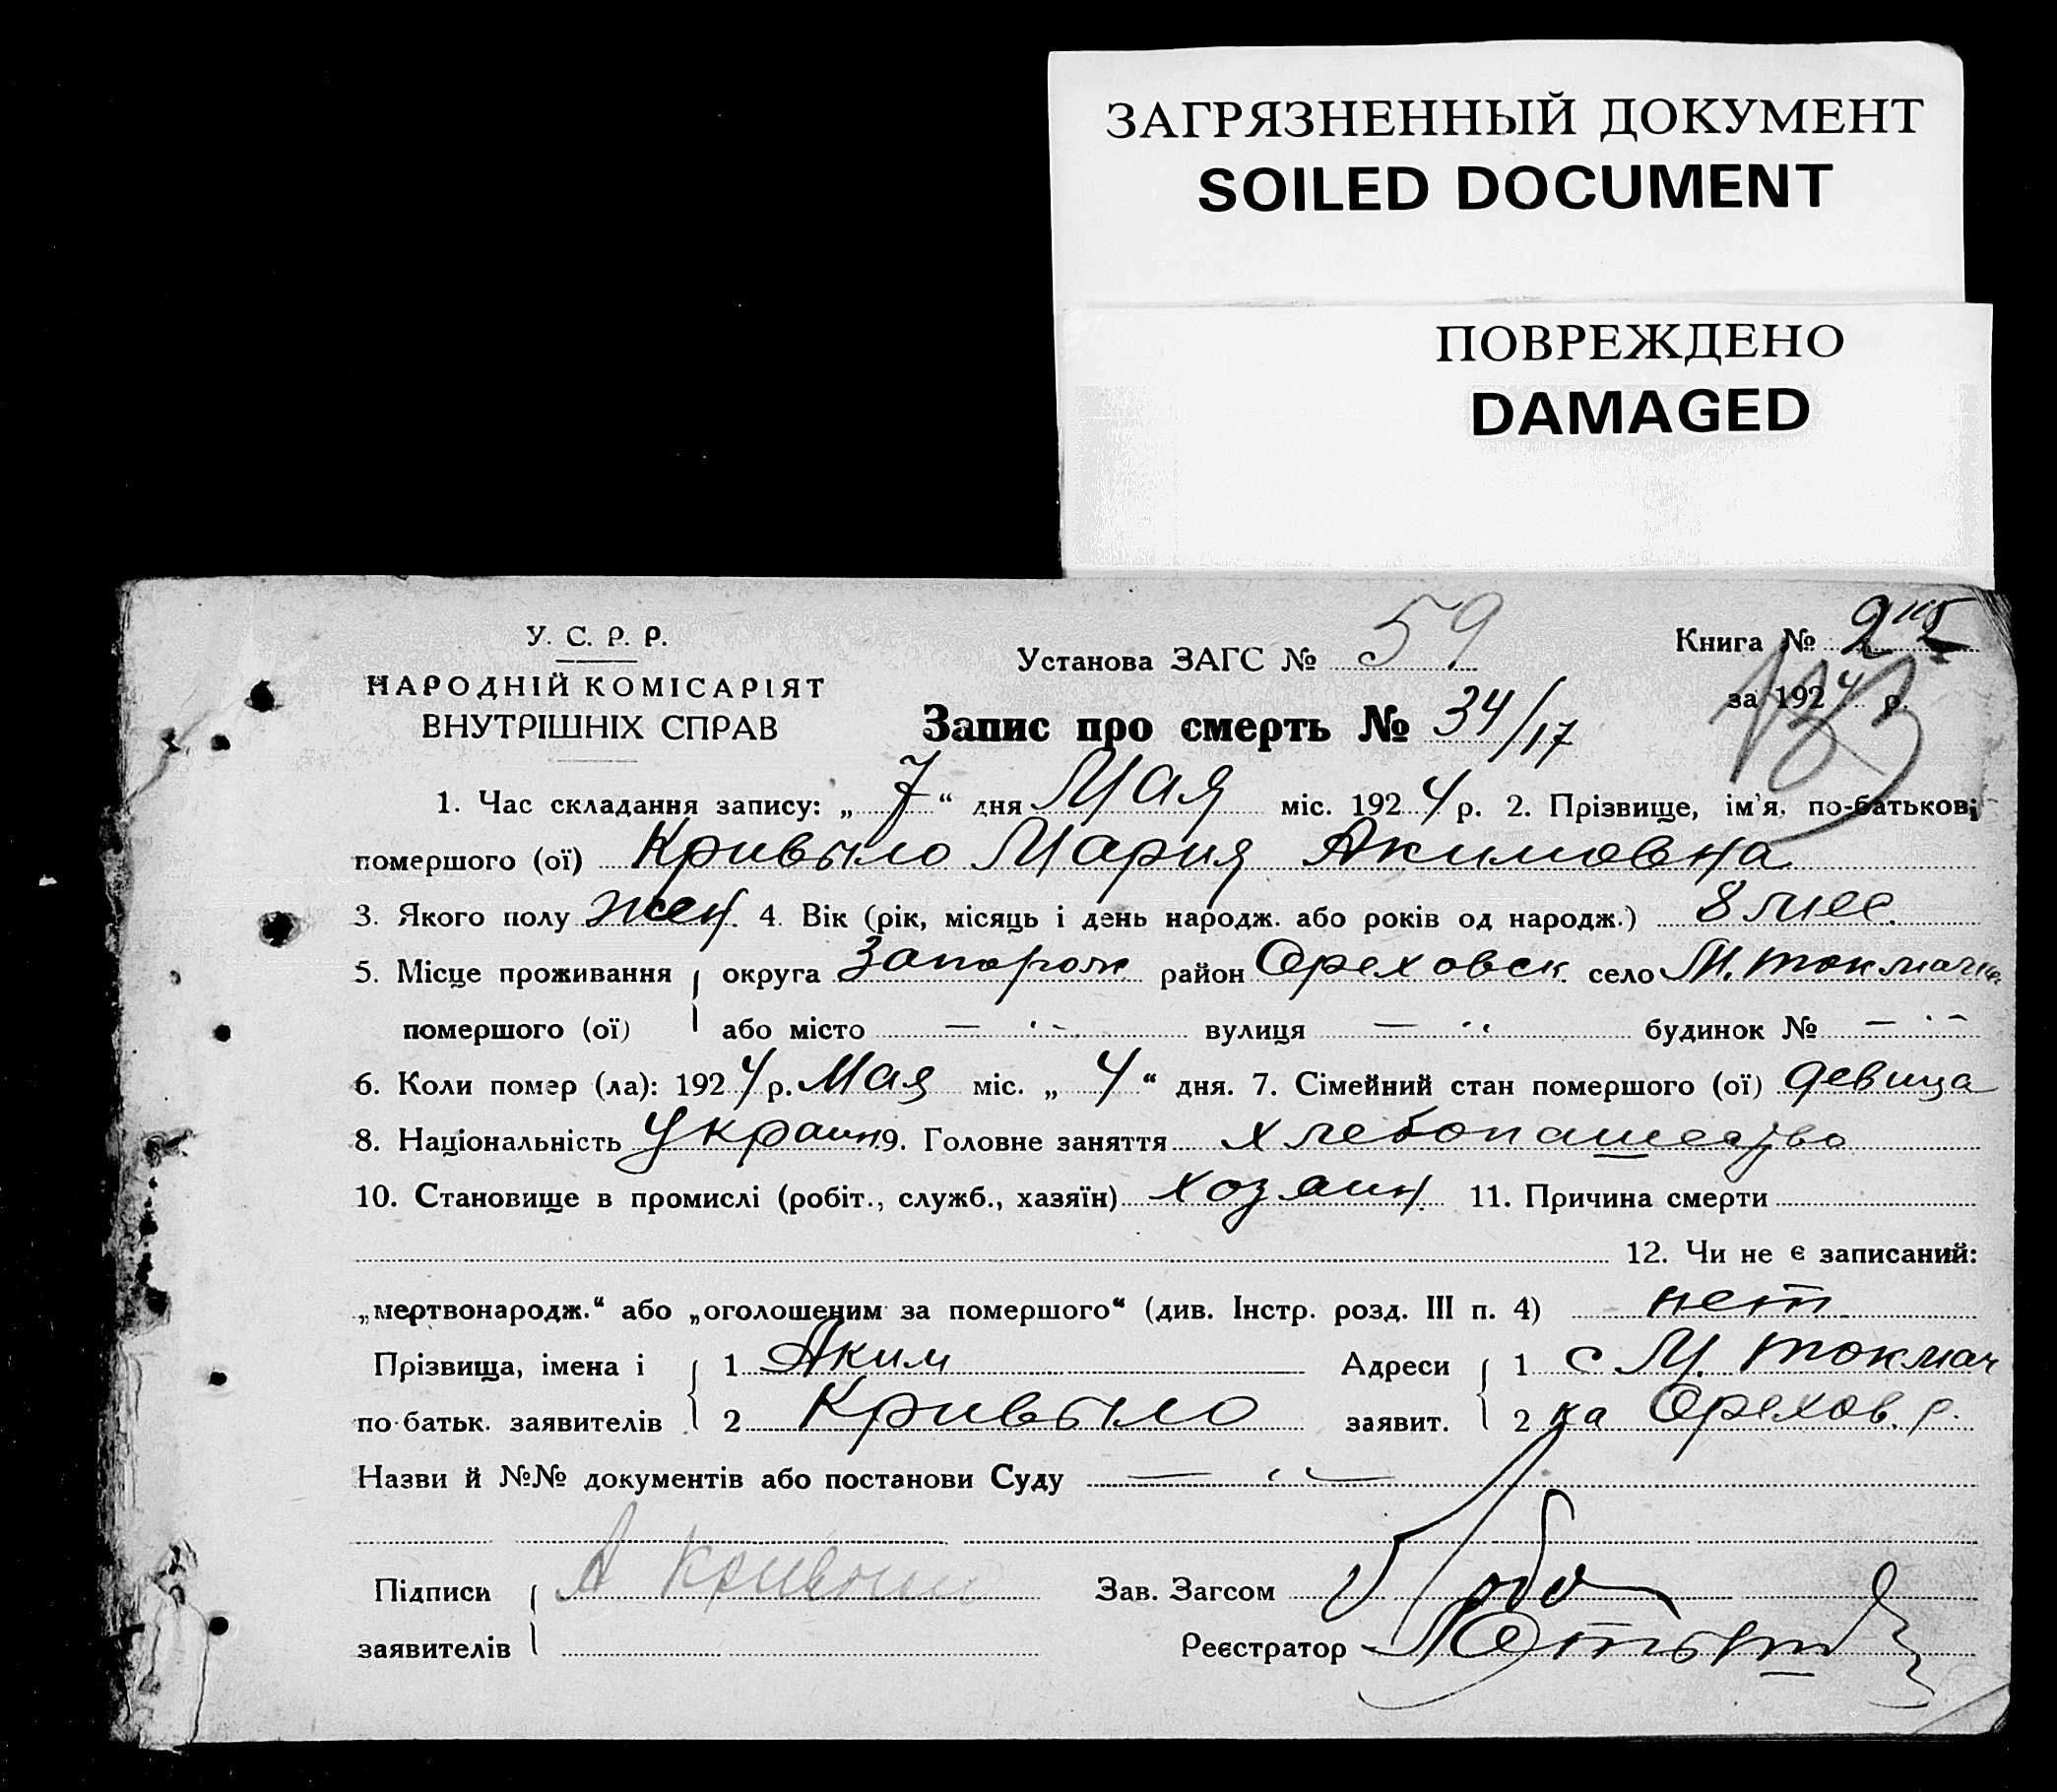 ЗАГРЯЗНЕННЫЙ ДОКУМЕНТ
SOILED DOCUMENT
ПОВРЕЖДЕНО
DAMAGED
У. С. Р. Р.
НАРОДНІЙ КОМІСАРІЯТ
ВНУТРІШНІХ СПРАВ
Установа ЗАГС № 59
Книга № 2
за 1924 р.
Запис про смерть № 34/17
1. Час складання запису: „7“ дня Мая міс. 1924 р. 2. Прізвище, ім'я, по-батькові
помершого (ої) Кривыло Мария Акимовна
3. Якого полу жен. 4. Вік (рік, місяць і день народж. або років од народж.) 8 мес.
5. Місце проживання округа Запорож район Ореховск. село М. токмачка
помершого (ої) або місто — вулиця — будинок № —
6. Коли помер (ла): 1924 р. Мая міс. „4“ дня. 7. Сімейний стан помершого (ої) девица
8. Національність Украин. 9. Головне заняття хлебопашество
10. Становище в промислі (робіт., служб., хазяїн) хозаин. 11. Причина смерти
12. Чи не є записаний:
„мертвонародж.“ або „оголошеним за помершого“ (див. Інстр. розд. III п. 4) нет
Прізвища, імена і 1 Аким Адреси 1 с М. токмач
по батьк. заявителів 2 Кривыло заявит. 2 ка Орехов. р.
Назви й №№ документів або постанови Суду —
Підписи А Кривыл Зав. Загсом
заявителів Реєстратор